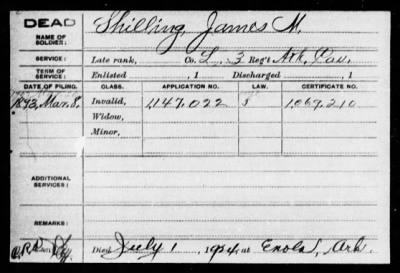 DEAD
NAME OF SOLDIER: Shilling, James M.
SERVICE: Late rank, Co. L, 3 Reg't Ark. Cav.
TERM OF SERVICE: Enlisted , 1 Discharged , 1
DATE OF FILING. CLASS. APPLICATION NO. LAW. CERTIFICATE NO.
1893, Mar. 8. Invalid, 1147,022 1,069,210
Widow,
Minor,
ADDITIONAL SERVICES:
REMARKS:
Died July 1, 1924, at Enola, Ark.